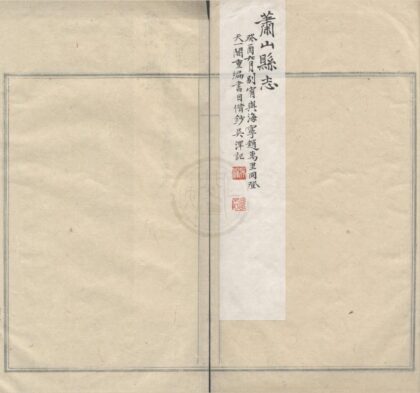 蕭山縣志
癸酉月別宥與海寧趙萬里同登
天一閣重編書目借鈔記